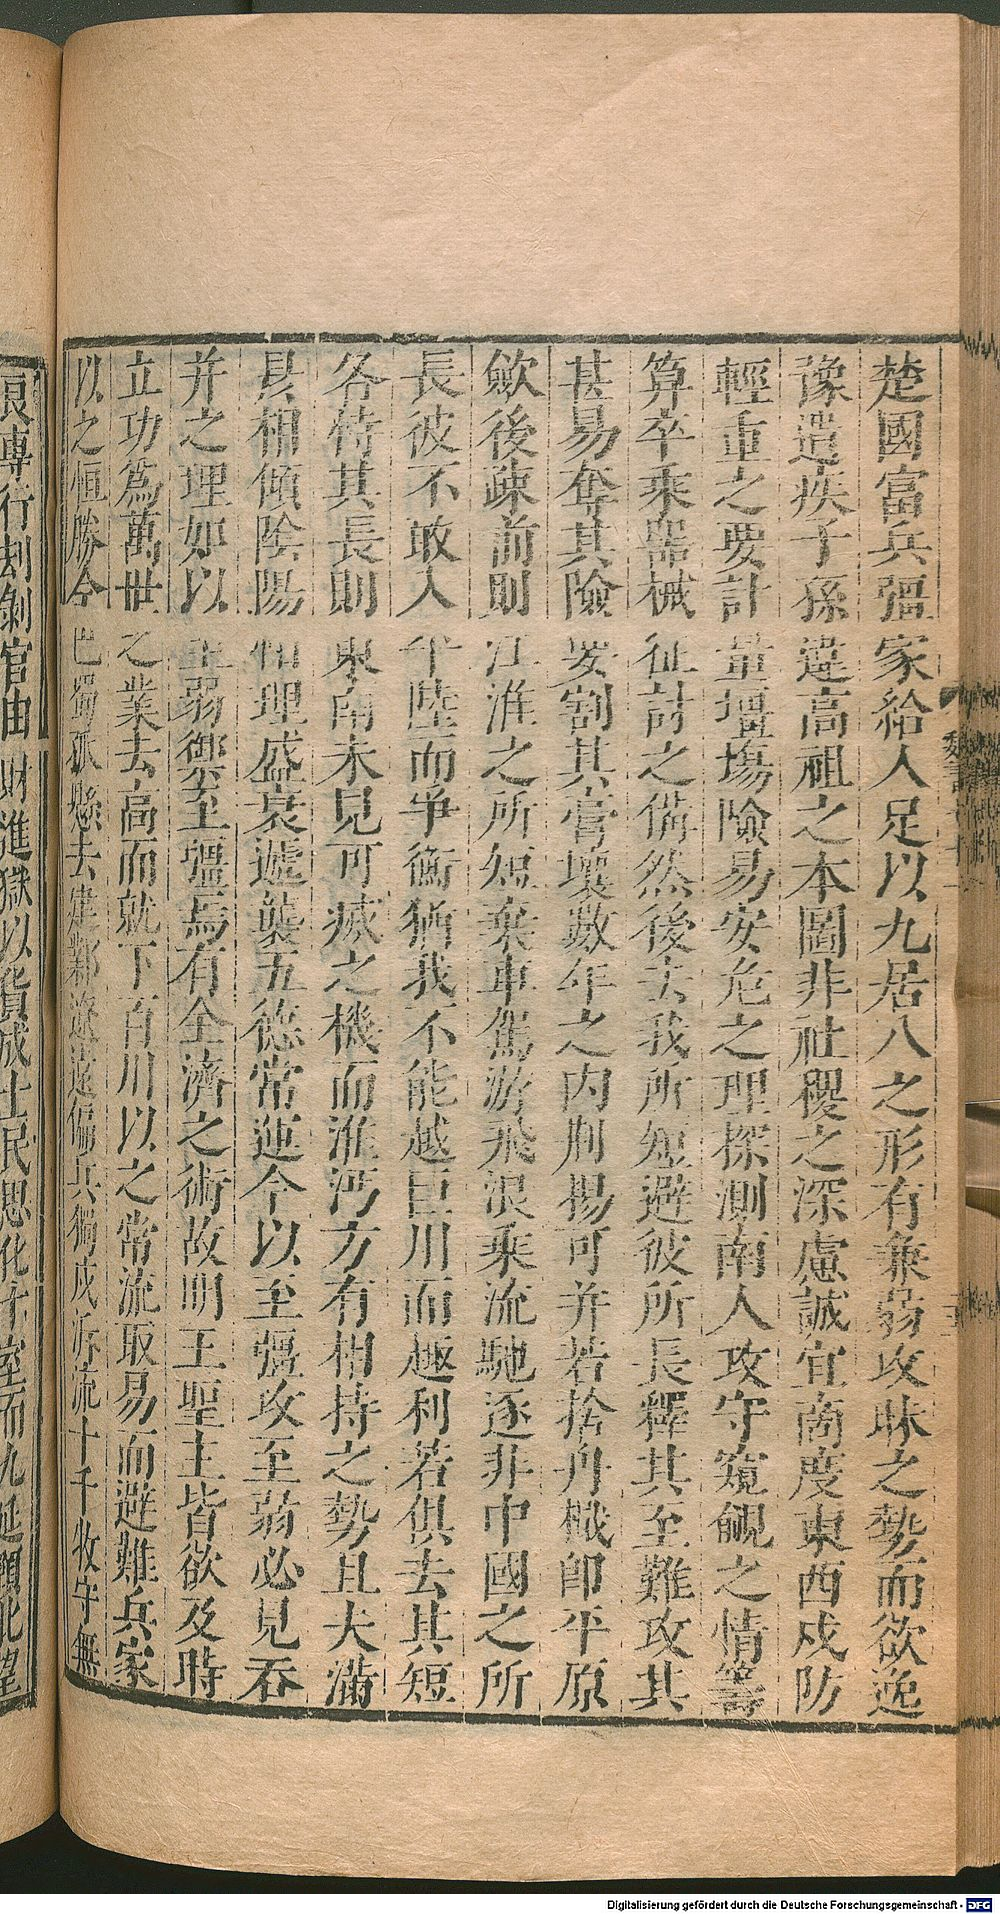 楚國富兵彊家給人足以九居八之形有兼弱攻昧之勢而欲逸
豫遺疾子孫違高祖之本圖非社稷之深慮誠宜商度東西戍防
輕重之要計量壃場險易安危之理探測南人攻守窺覦之情籌
算卒乘器械征討之備然後去我所短避彼所長釋其至難攻其
甚易奪其險要割其膏壤數年之內荆揚可并若捨舟檝即平原
歛後疎前則江淮之所短棄車駕游飛浪乘流馳逐非中國之所
長彼不敢入平陸而爭衡猶我不能越巨川而趣利若俱去其短
各恃其長則東南未見可滅之機而淮沔方有相持之勢且夫滿
昃相傾陰陽恒理盛衰遞襲五德常運今以至彊攻至弱必見吞
并之理如以至弱禦至彊焉有全濟之術故明王聖主皆欲及時
立功爲萬世之業去高而就下百川以之常流取易而避難兵家
以之恒勝今巴蜀孤懸去建鄴遼遠偏兵獨戍泝流十千牧守無
良專行刦剝官由財進獄以貨成士民思化十室而九延頸北望
魏
Digitalisierung gefördert durch die Deutsche Forschungsgemeinschaft - DFG